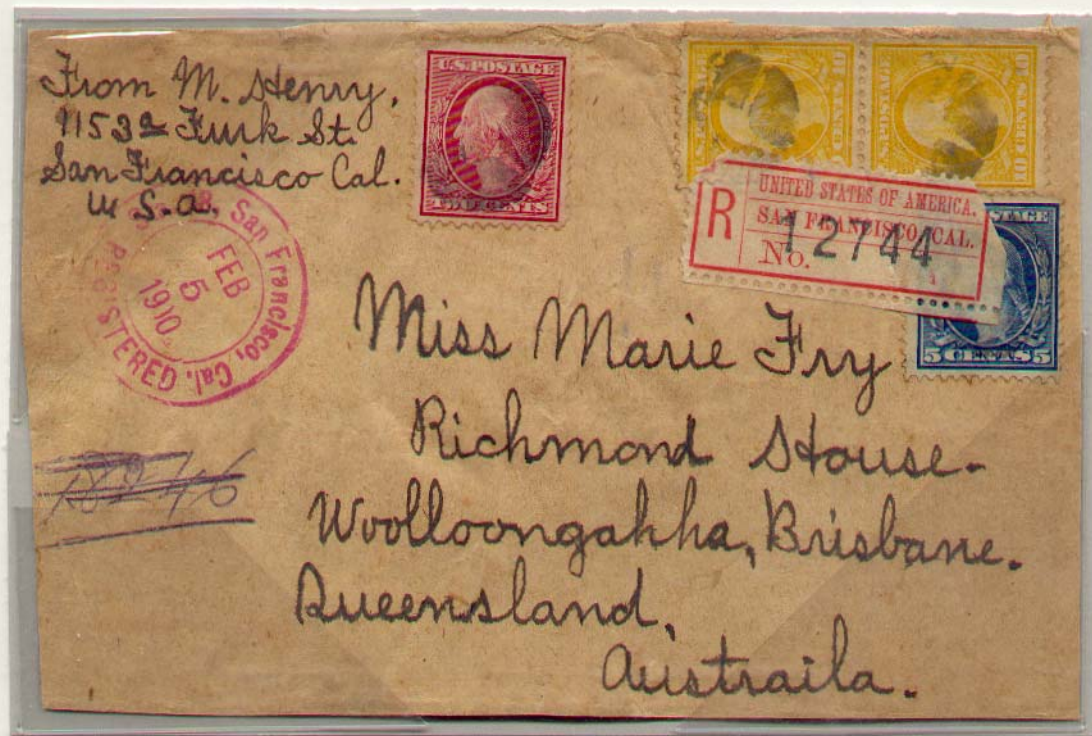 From M. Henry,
1153a Turk St.
San Francisco Cal.
U S. a.
U.S. POSTAGE
TWO CENTS
10 CENTS 10
POSTAGE
10 CENTS 10
R
UNITED STATES OF AMERICA.
SAN FRANCISCO, CAL.
No. 12744
POSTAGE
5 CENTS 5
San Francisco, Cal.
REGISTERED.
FEB
5
1910
Miss Marie Fry
Richmond House.
Woolloongahha, Brisbane.
Queensland,
Austraila.